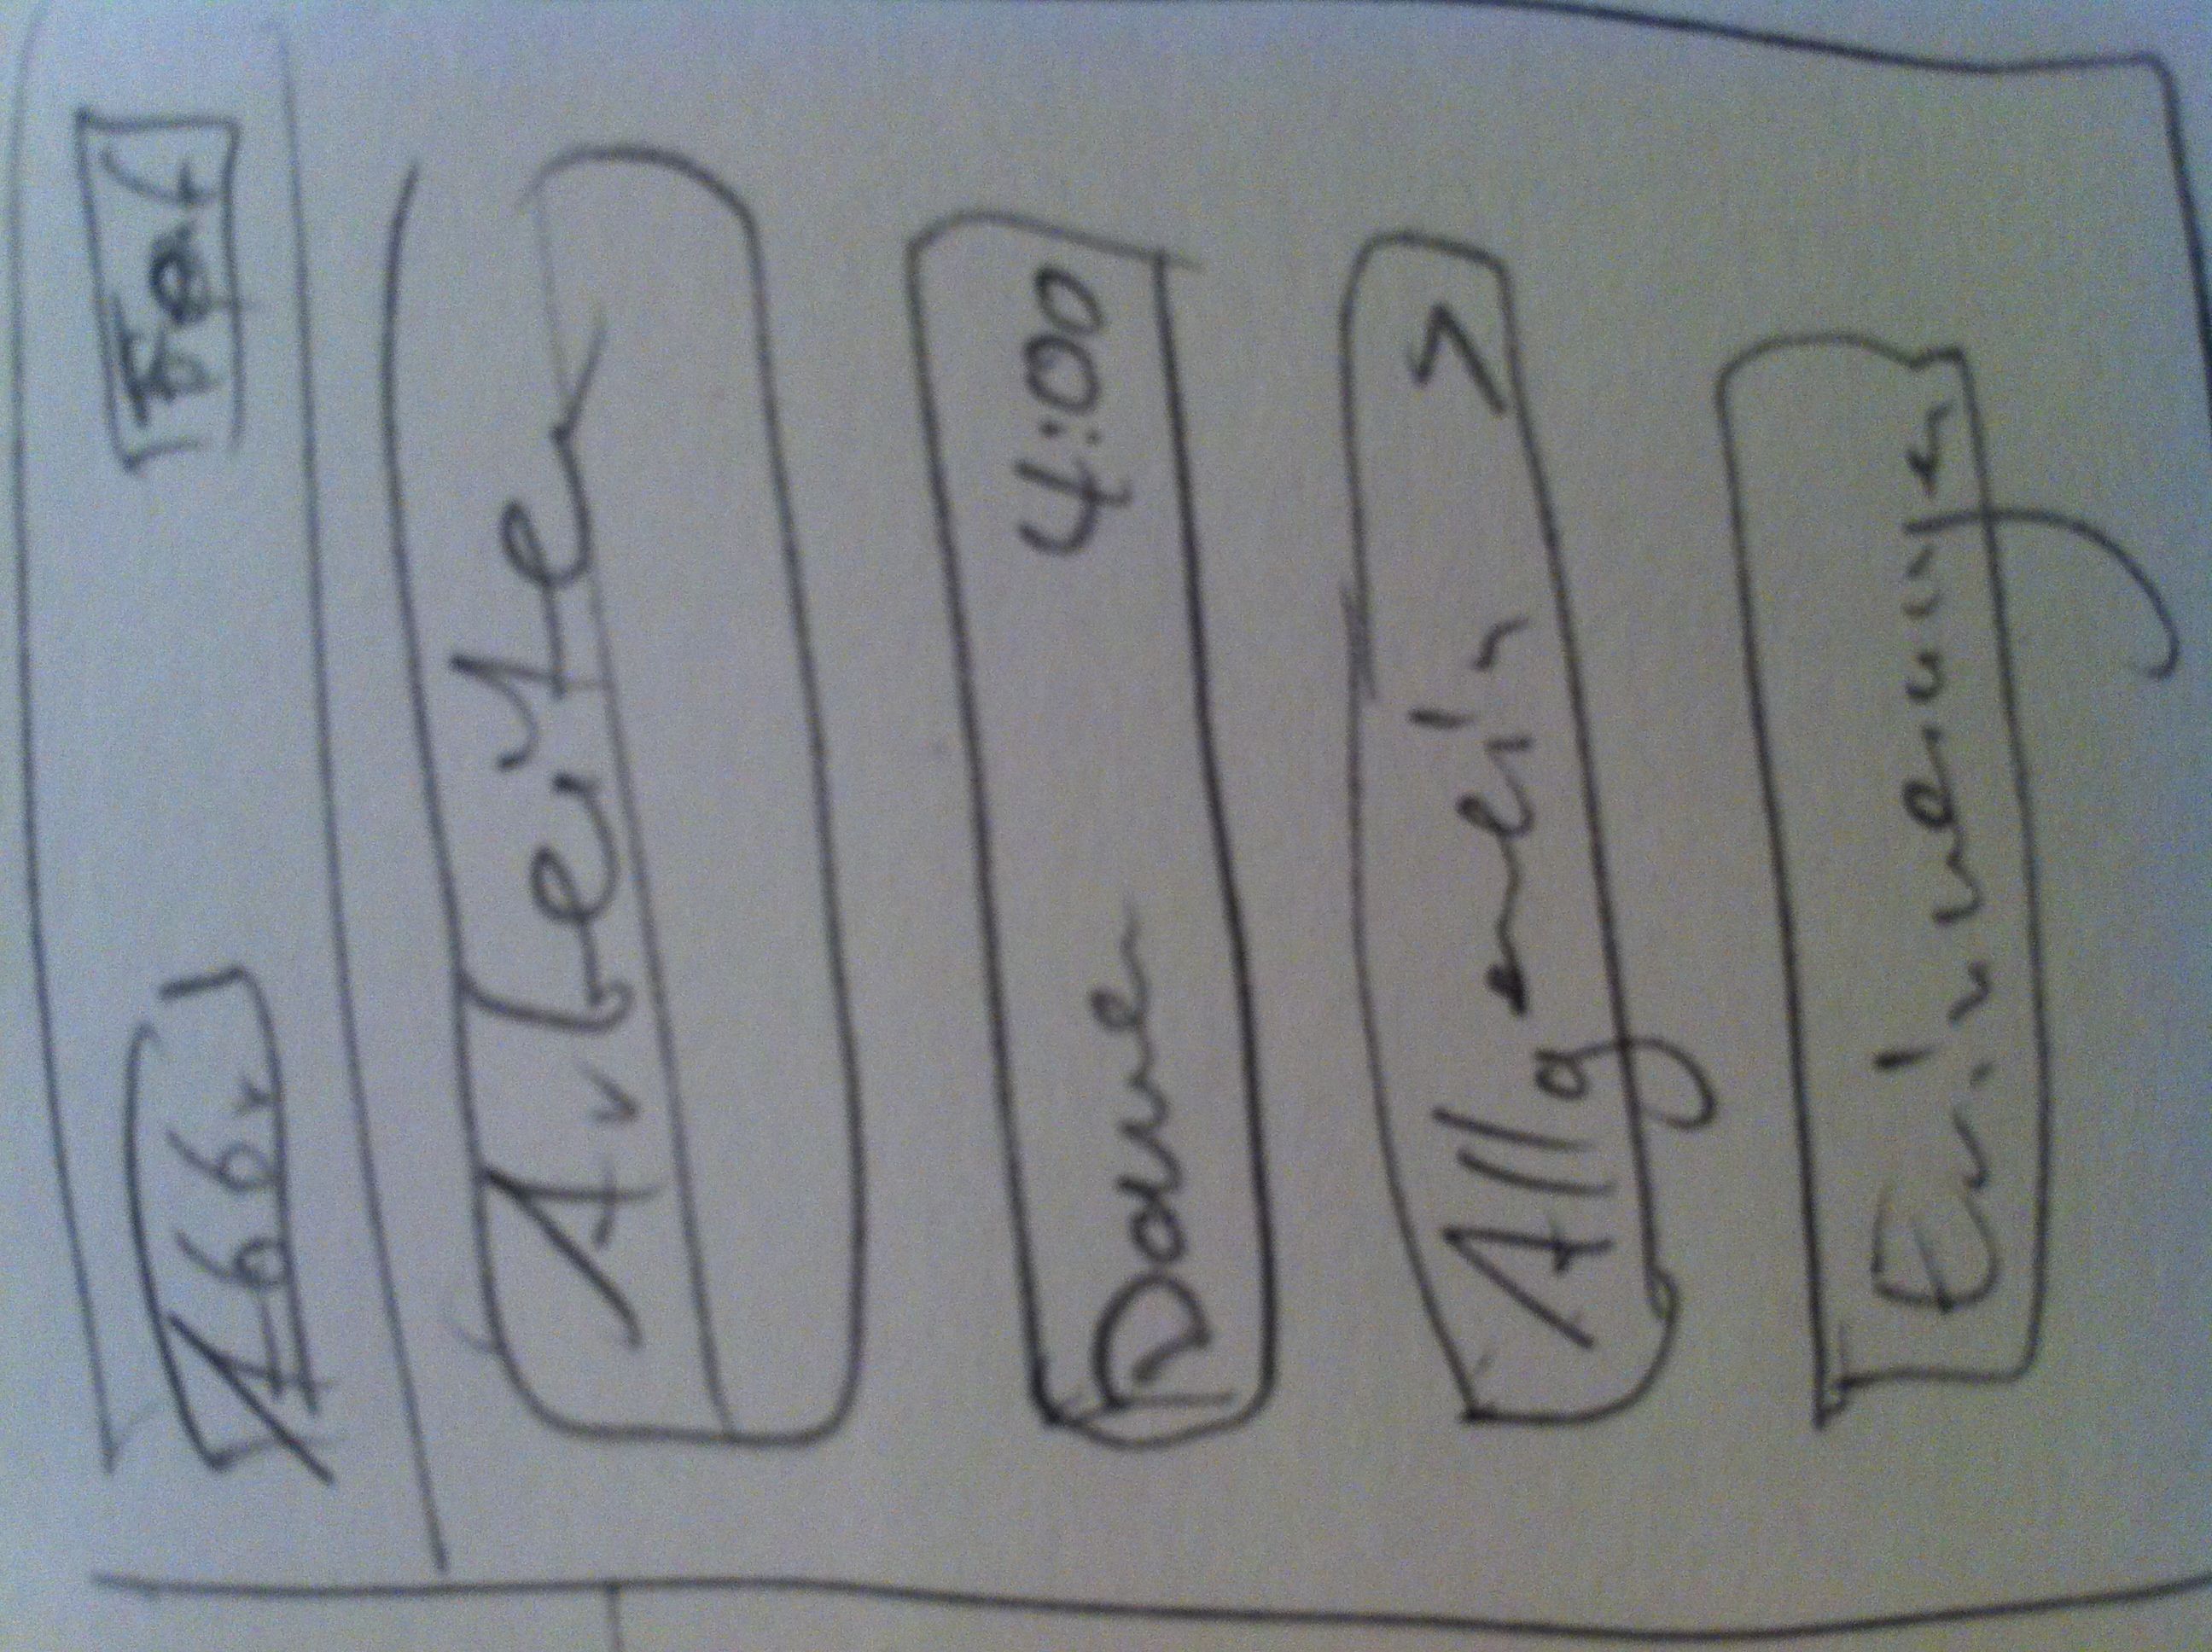 Abbr
Arbeiten
Dauer 4:00
Allgemein >
Erinnerungen